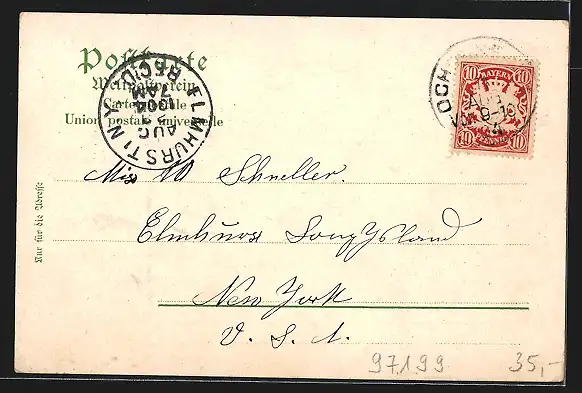 Postkarte
Weltpostverein
Carte postale
Union postale universelle
ELMHURST N.Y.
AUG
7AM
1904
REC'D.
LOCH
9-10
BAYERN
10 10
10 PFENNIG 10
Nur für die Adresse
Schneller.
Elmhurst Long Ysland
New York
V. S. A.
97199 35,-